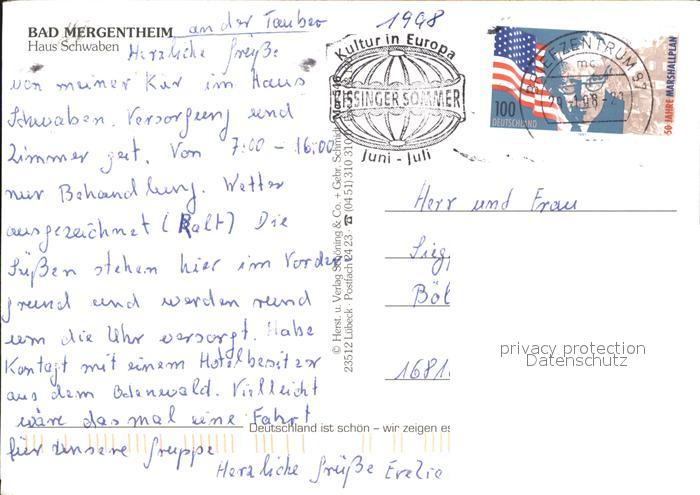 BAD MERGENTHEIM an der Tauber
Haus Schwaben
1998
Herzliche Grüße
von meiner Kur im Haus
Schwaben. Versorgung und
Zimmer gut. Von 7:00 – 16:00
nur Behandlung. Wetter
ausgezeichnet (Kalt) Die
Füßen stehen hier im Vorder
grund und werden rund
um die Uhr versorgt. Habe
Kontagt mit einem Hotelbesitzer
aus dem Odenwald. Vielleicht
wäre das mal eine Fahrt
für unsere Gruppe
Herzliche Grüße
Deutschland ist schön – wir zeigen es
© Herst. u. Verlag Schöning & Co. + Gebr. Schmidt
23512 Lübeck · Postfach 24 23 · ☎ (04 51) 310 310
Kultur in Europa
KISSINGER SOMMER
Juni - Juli
BRIEFZENTRUM 97
mc
100
DEUTSCHLAND
50 JAHRE MARSHALLPLAN
Herr und Frau
Sieg
Böt
1681
privacy protection
Datenschutz